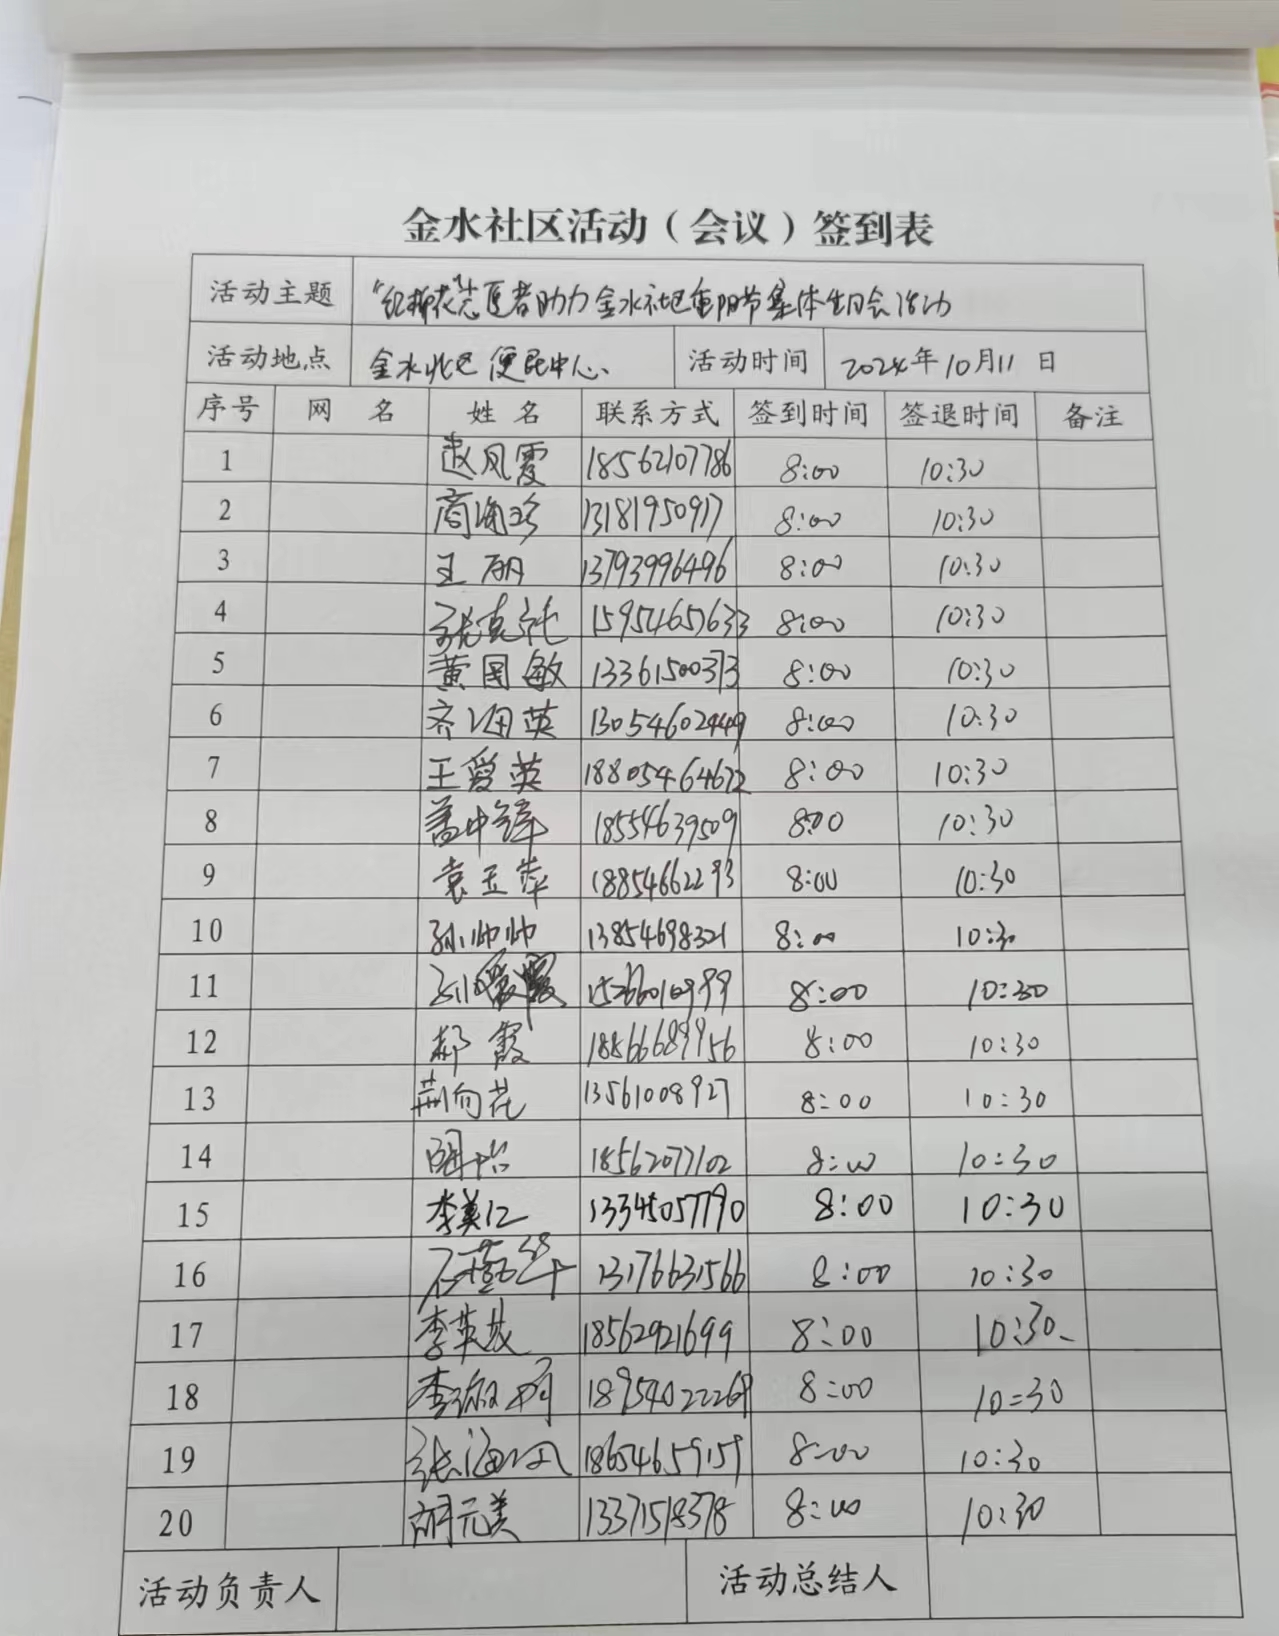 金水社区活动（会议）签到表
活动主题 "红柳花"志愿者助力金水社区重阳节集体生日会活动
活动地点 金水社区便民中心 活动时间 2024年10月11日
序号 网 名 姓 名 联系方式 签到时间 签退时间 备注
1 赵风霞 18562107786 8:00 10:30
2 商海珍 13181950917 8:00 10:30
3 王丽 13793996496 8:00 10:30
4 张克 15954657633 8:00 10:30
5 黄国敏 13361500373 8:00 10:30
6 齐海英 13054602449 8:00 10:30
7 王爱英 18805464672 8:00 10:30
8 盖中锋 18554639509 8:00 10:30
9 袁玉萍 18854662293 8:00 10:30
10 孙帅帅 13854698321 8:00 10:30
11 8:00 10:30
12 郝霞 18866689956 8:00 10:30
13 荆向花 13561008927 8:00 10:30
14 18562077102 8:00 10:30
15 李美仁 13345057790 8:00 10:30
16 石燕华 13176631566 8:00 10:30
17 李英 18562921699 8:00 10:30
18 李 18954022269 8:00 10:30
19 张海 18654659159 8:00 10:30
20 胡元美 13371518378 8:00 10:30
活动负责人 活动总结人